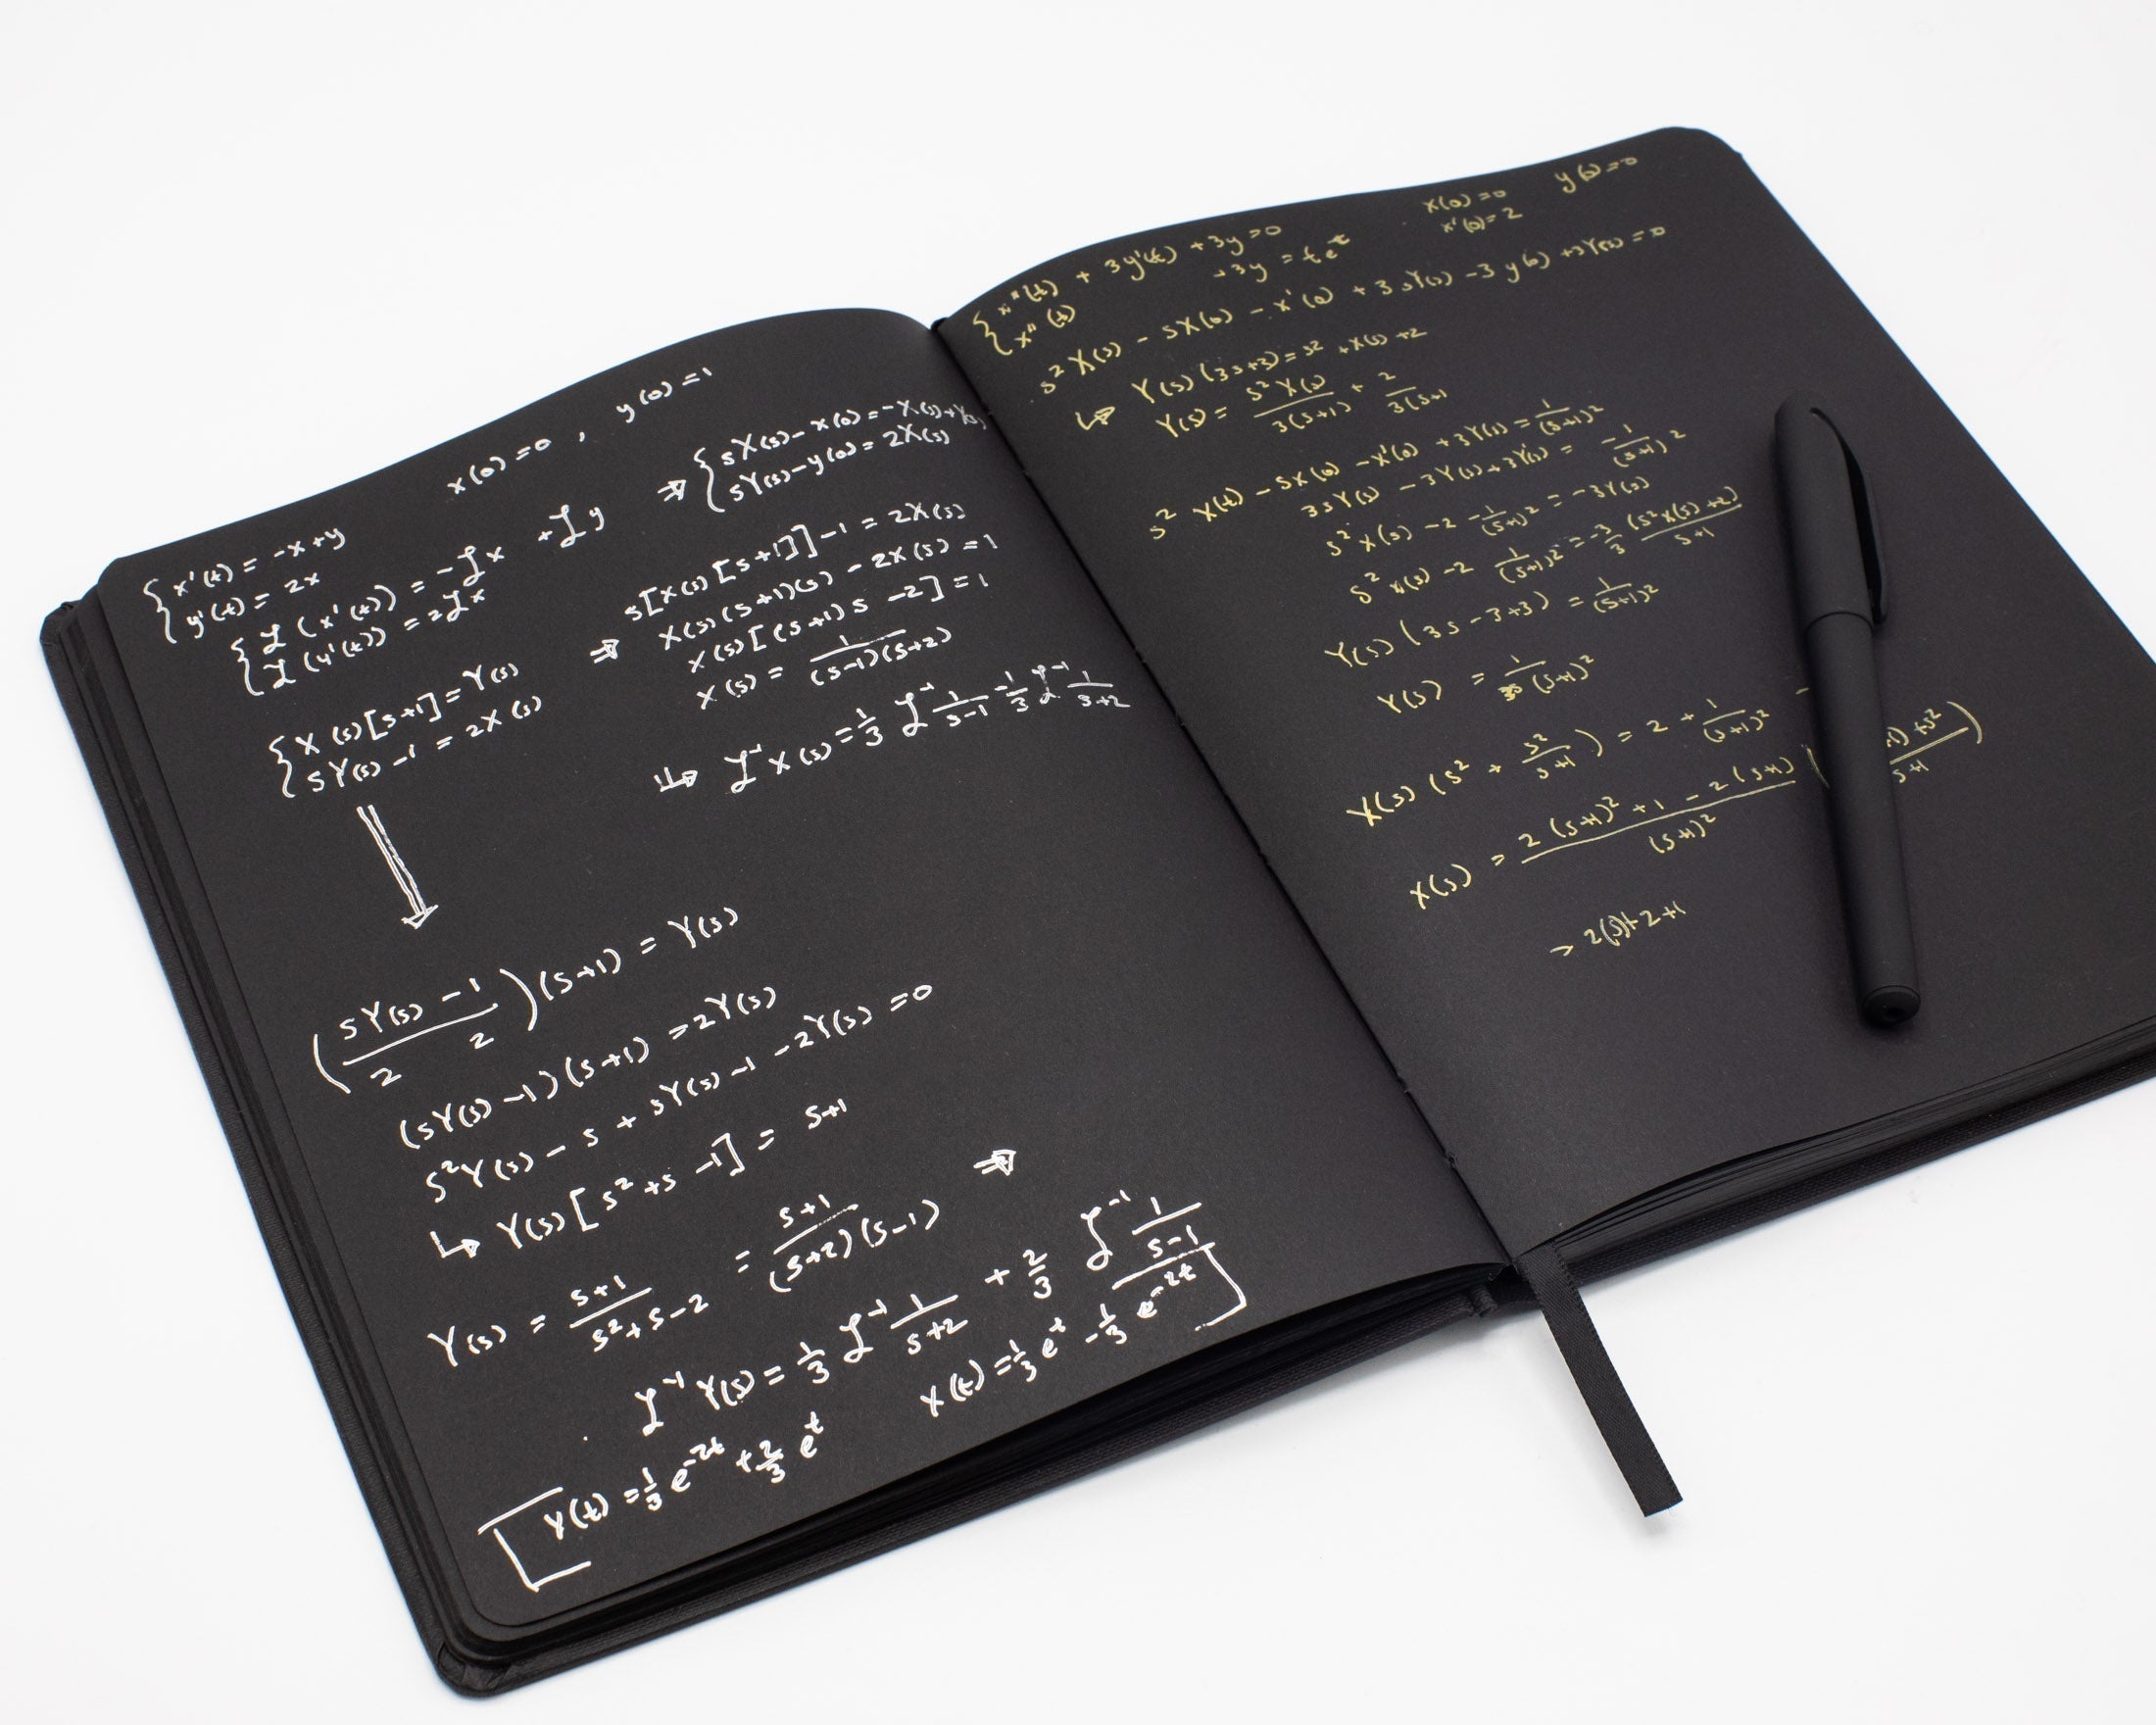 x(0)=0 , y(0)=1
{ x'(t) = -x+y
y'(t) = 2x
{ ℒ(x'(t)) = -ℒx +ℒy
ℒ(y'(t)) = 2ℒx
⇒ { sX(s)-x(0)=-X(s)+Y(s)
sY(s)-y(0)=2X(s)
{ X(s)[s+1]=Y(s)
sY(s)-1 = 2X(s)
⇒ s[X(s)[s+1]]-1 = 2X(s)
X(s)(s+1)(s) - 2X(s) = 1
X(s)[(s+1)s -2] = 1
X(s) = 1/((s-1)(s+2))
↳ ℒ⁻¹X(s) = 1/3 ℒ⁻¹ 1/(s-1) - 1/3 ℒ⁻¹ 1/(s+2)
⇓
((sY(s)-1)/2 2)(s+1) = Y(s)
(sY(s)-1)(s+1) = 2Y(s)
s²Y(s) - s + sY(s) - 1 - 2Y(s) = 0
↳ Y(s)[s²+s-1] = s+1
Y(s) = (s+1)/(s²+s-2) = (s+1)/((s+2)(s-1)) ⇒
ℒ⁻¹Y(s) = 1/3 ℒ⁻¹ 1/(s+2) + 2/3 ℒ⁻¹ 1/(s-1)
Y(t) = 1/3 e^-2t + 2/3 e^t
X(t) = 1/3 e^t - 1/3 e^-2t
x(0)=0 y(0)=0
x'(0)=2
{ x''(t) + 3y'(t) + 3y = 0
x''(t) +3y = te^t
s²X(s) - sX(0) - x'(0) + 3sY(s) - 3y(0) + 3Y(s) = 0
↳ Y(s)(3s+3) = s² +X(s) +2
Y(s) = s²X(s)/3(s+1) + 2/3(s+1
s² X(t) - sX(0) - x'(0) + 3Y(s) = 1/(s+1)²
3sY(s) - 3Y(s) + 3Y(s) = -1/(s+1)²
s²X(s) - 2 - 1/(s+1)² = -3Y(s)
s²X(s) - 2 1/(s+1)² = -3/3 (s²X(s)+2)/(s+1)
Y(s)(3s-3+3) = 1/(s+1)²
Y(s) = 1/3s(s+1)²
X(s)(s² + s²/(s+1)) = 2 + 1/(s+1)² -
X(s) = (2(s+1)²+1-2(s+1))/(s+1)² ( +1)+s²/(s+1) )
→ 2(s)+2+1